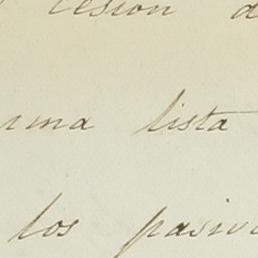 lesion d
una lista
los pasiv